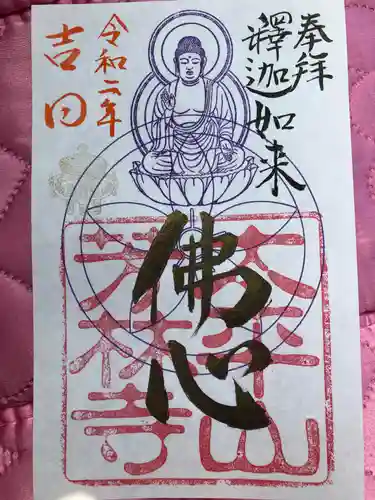 奉拝
釋迦如来
令和二年
吉日
佛心
太平山
芳林寺